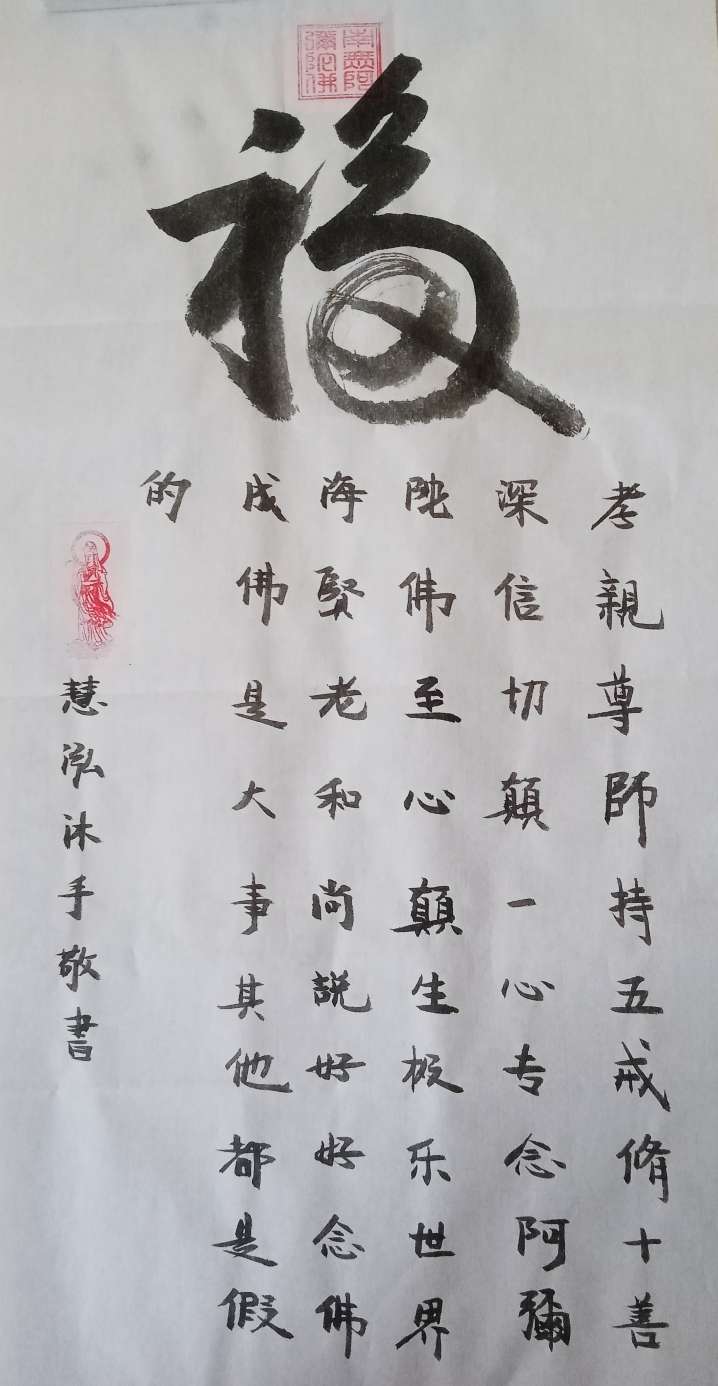 南無阿
彌陀佛
福
孝親尊師持五戒脩十善
深信切願一心专念阿彌
陀佛至心願生极乐世界
海賢老和尚説好好念佛
成佛是大事其他都是假
的
慧泓沐手敬書